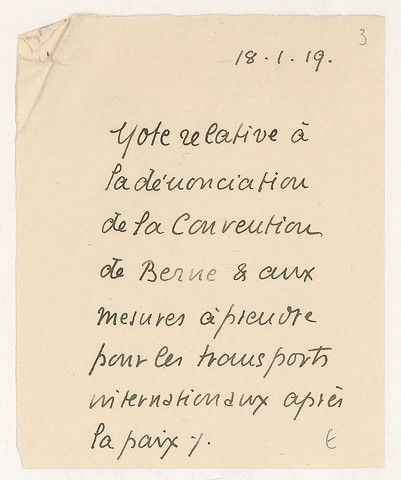 3
18.1.19.
Note relative à
la dénonciation
de la Convention
de Berne & aux
mesures à prendre
pour les transports
internationaux après
la paix /.
t